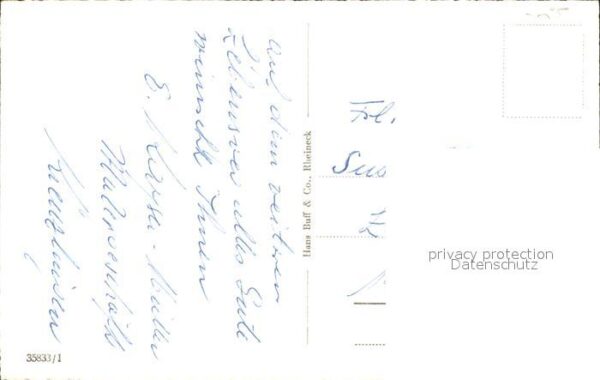 Auf dem weitren
Lebensweg alles Gute
wünscht Ihnen
E. Keysa-Müller
Malergeschäft
Hans Buff & Co., Rheineck
Frl.
Sus
privacy protection
Datenschutz
35833/1